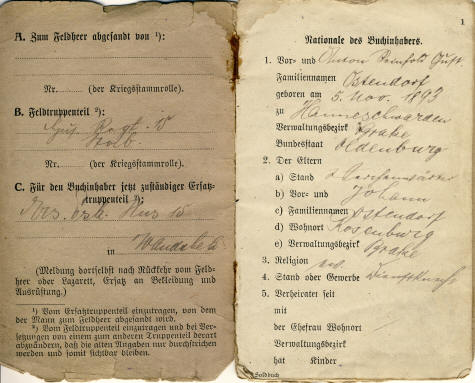 A. Zum Feldheer abgesandt von ¹):
Nr. (der Kriegsstammrolle).
B. Feldtruppenteil ²):
Nr. (der Kriegsstammrolle).
C. Für den Buchinhaber jetzt zuständiger Ersatz-
truppenteil ²):
in Wandsbek
(Meldung dortselbst nach Rückkehr vom Feld-
heer oder Lazarett, Ersatz an Bekleidung und
Ausrüstung.)
¹) Vom Ersatztruppenteil einzutragen, von dem
der Mann zum Feldheer abgesandt wird.
²) Vom Feldtruppenteil einzutragen und bei Ver-
setzungen von einem zum anderen Truppenteil derart
abzuändern, daß die alten Angaben nur durchstrichen
werden und somit sichtbar bleiben.
1
Nationale des Buchinhabers.
1. Vor- und Anton Reinhold Gust.
Familiennamen Ostendorf
geboren am 5. Nov. 1893
zu
Verwaltungsbezirk
Bundesstaat Oldenburg
2. Der Eltern
a) Stand
b) Vor- und Johann
c) Familiennamen Ostendorf
d) Wohnort
e) Verwaltungsbezirk
3. Religion ev.
4. Stand oder Gewerbe Dienstknecht
5. Verheiratet seit
mit
der Ehefrau Wohnort
Verwaltungsbezirk
hat Kinder
Soldbuch